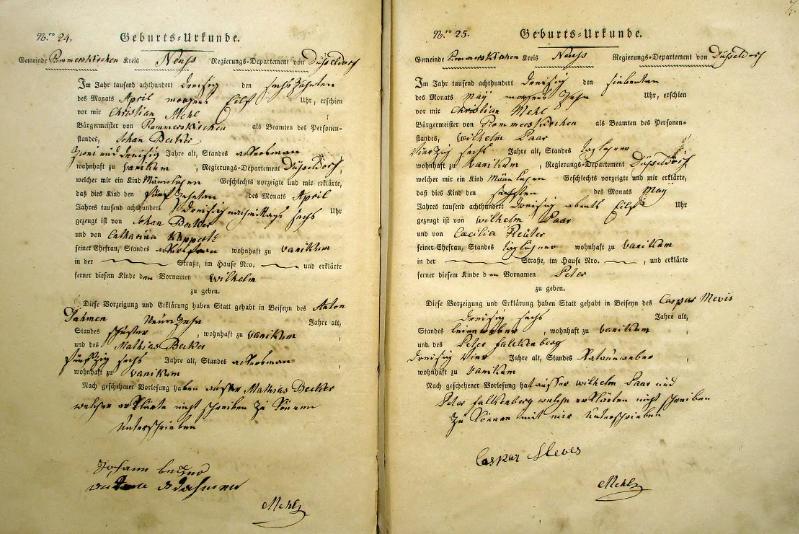 Nro. 24. Geburts-Urkunde.
Gemeinde Rommerskirchen Kreis Neuss Regierungs-Departement von Düsseldorf
Im Jahr tausend achthundert dreisig den sechszehnten
des Monats April morgens Eilf Uhr, erschien
vor mir Christian Mehl
Bürgermeister von Rommerskirchen als Beamten des Personen-
standes, Johan Becker
zwei und dreisig Jahre alt, Standes ackersman
wohnhaft zu vanikum, Regierungs-Departement Düsseldorf,
welcher mir ein Kind Männlichen Geschlechts vorzeigte und mir erklärte,
daß dies Kind den fünfzehnten des Monats April
Jahres tausend achthundert dreisig nachmittags sechs Uhr
gezeugt ist von Johan Becker
und von Catharina
seiner Ehefrau, Standes wohnhaft zu vanikum
in der Straße, im Hause Nro. , und erklärte
ferner diesem Kinde den Vornamen Wilhelm
zu geben.
Diese Vorzeigung und Erklärung haben Statt gehabt in Beiseyn des Anton
Dahmen Neunzehn Jahre alt,
Standes , wohnhaft zu vanikum
und des Mathias Becker
fünfzig sechs Jahre alt, Standes ackersman
wohnhaft zu vanikum
Nach geschehener Vorlesung haben ausser Mathias Becker
welcher erklärte nicht schreiben zu können
Unterschrieben
Johann becker
anton dahmen
CMehl
Nro. 25. Geburts-Urkunde.
Gemeinde Rommerskirchen Kreis Neuss Regierungs-Departement von Düsseldorf
Im Jahr tausend achthundert dreisig den siebenten
des Monats May morgens Zehn Uhr, erschien
vor mir Christian Mehl
Bürgermeister von Rommerskirchen als Beamten des Personen-
standes, Wilhelm Paar
vierzig sechs Jahre alt, Standes taglohner
wohnhaft zu vanikum, Regierungs-Departement Düsseldorf
welcher mir ein Kind Männlichen Geschlechts vorzeigte und mir erklärte,
daß dies Kind den sechsten des Monats May
Jahres tausend achthundert dreisig abends Eilf Uhr
gezeugt ist von Wilhelm Paar
und von Caecilia Reuter
seiner Ehefrau, Standes taglohner wohnhaft zu vanikum
in der Straße, im Hause Nro. , und erklärte
ferner diesem Kinde den Vornamen Peter
zu geben.
Diese Vorzeigung und Erklärung haben Statt gehabt in Beiseyn des Caspar Mevis
dreisig sechs Jahre alt,
Standes leinweber, wohnhaft zu vanikum
und des Peter falkenberg
dreisig vier Jahre alt, Standes
wohnhaft zu vanikum
Nach geschehener Vorlesung hat ausser Wilhelm Paar und
Peter falkenberg welche erklärten nicht schreiben
zu können mit mir unterschrieben
Caspar Meves
CMehl